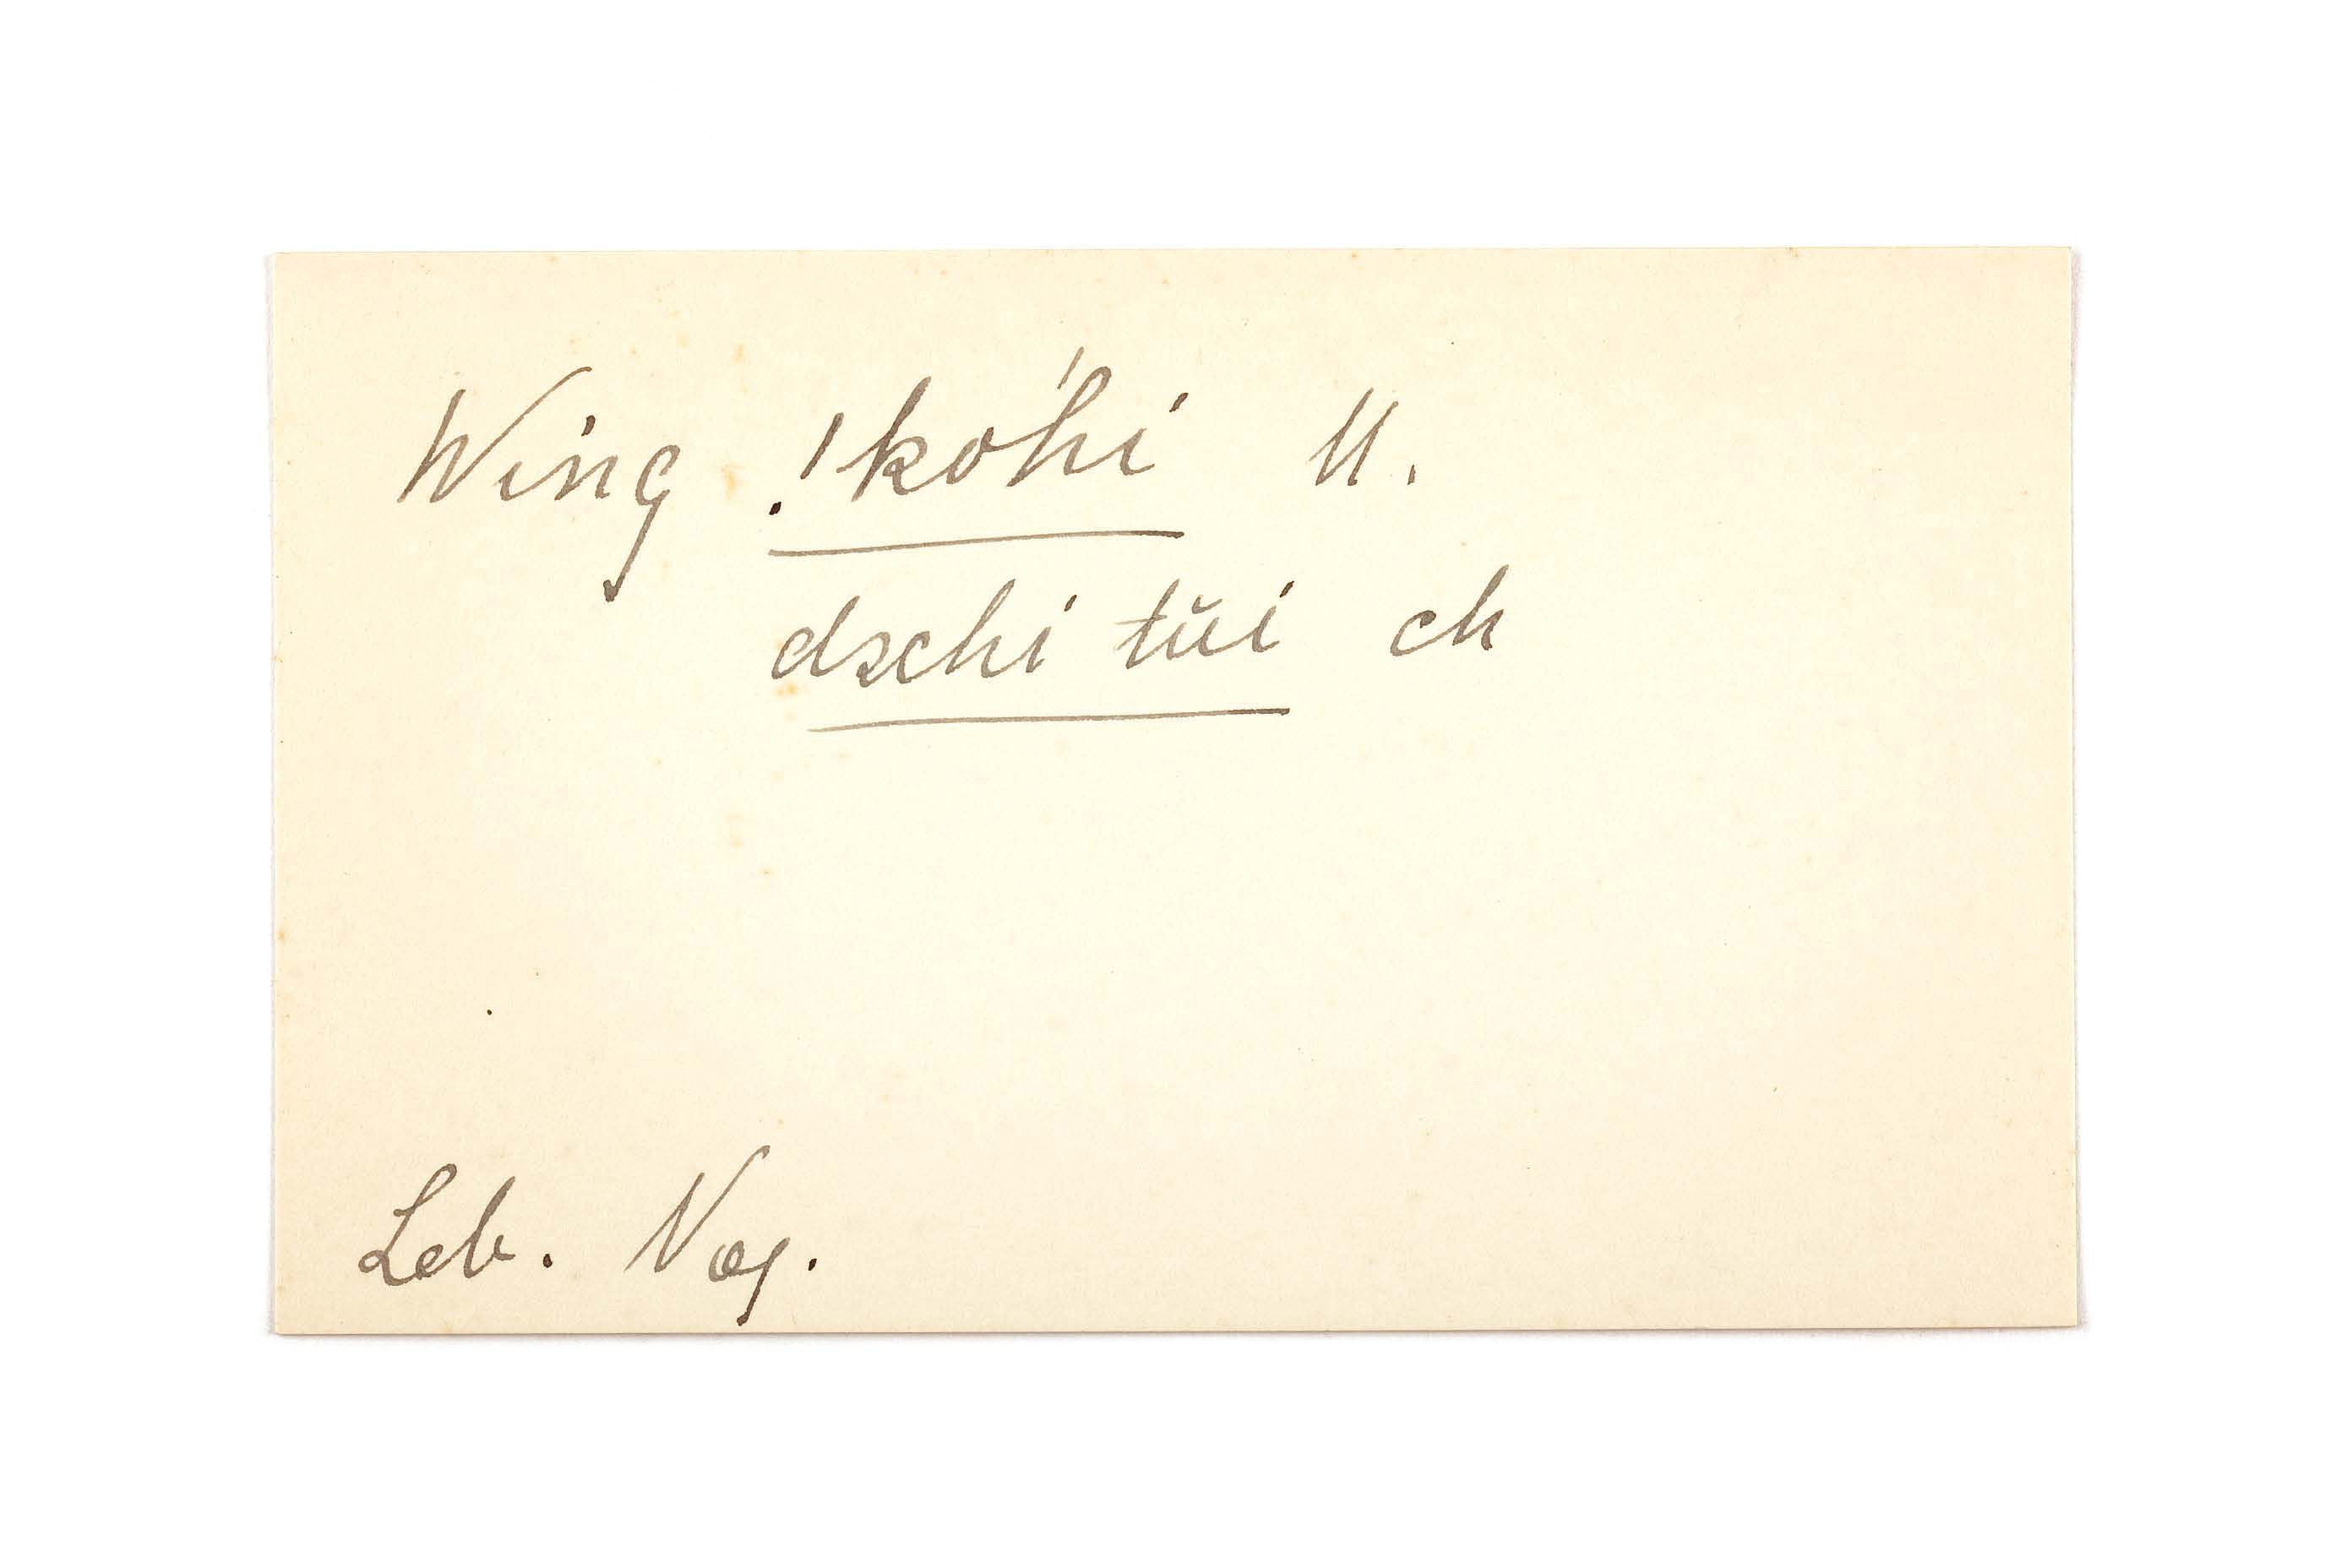 Wing !kóhi M.
dschi tŭi ch
Leb. Nog.